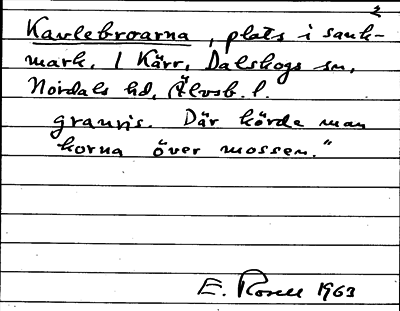 2
Kavlebroarna, plats i sank-
mark. / Kärr, Dalskogs sn,
Nordals hd, Älvsb. l.
granris. Där körde man
korna över mossen."
E. Rosell 1963